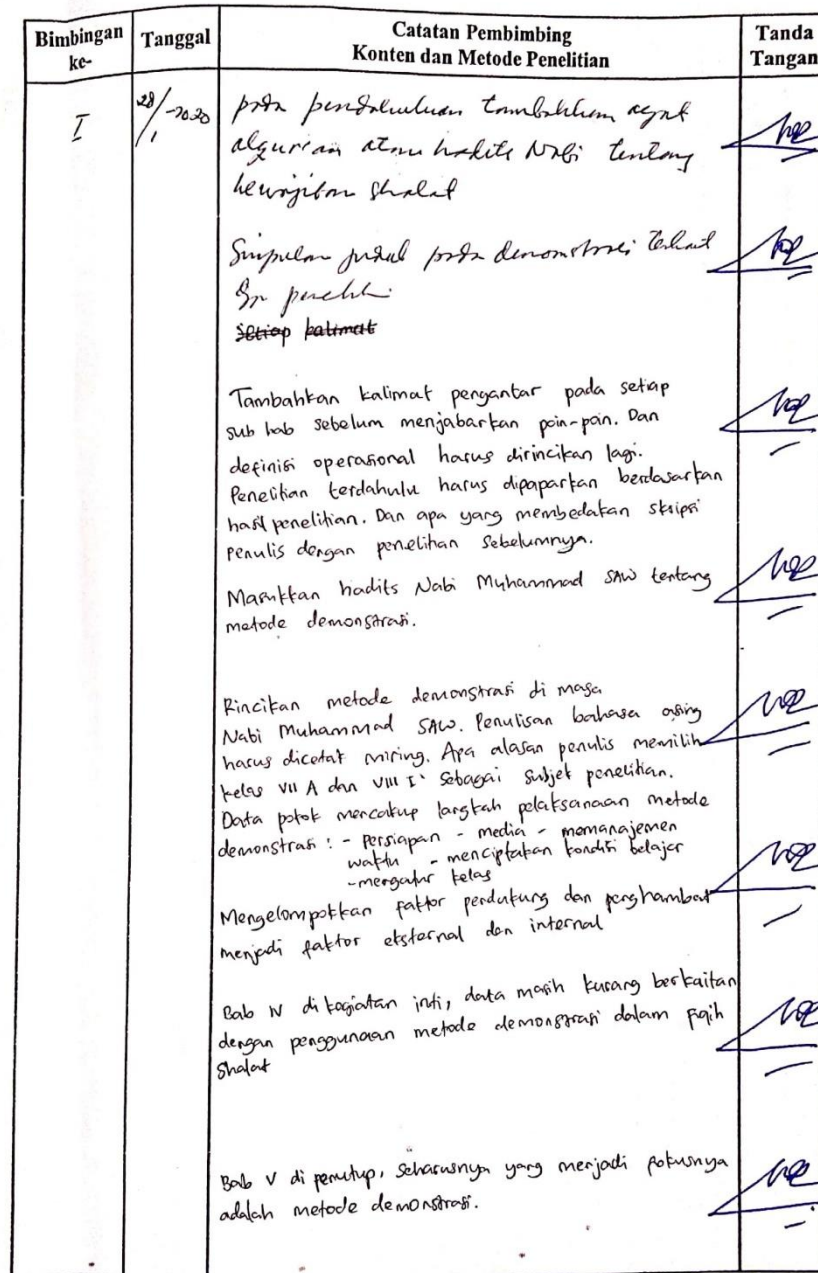 Bimbingan ke-
Tanggal
Catatan Pembimbing
Konten dan Metode Penelitian
Tanda Tangan
I
28/1-2020
pada pendahuluan tambahkan ayat
alqur'an atau hadits Nabi tentang
kewajiban shalat
Simpulan judul pada demonstrasi terkait
setiap kalimat
Tambahkan kalimat pengantar pada setiap
sub bab sebelum menjabarkan poin-poin. Dan
definisi operasional harus dirincikan lagi.
Penelitian terdahulu harus dipaparkan berdasarkan
hasil penelitian. Dan apa yang membedakan skripsi
penulis dengan penelitian sebelumnya.
Masukkan hadits Nabi Muhammad SAW tentang
metode demonstrasi.
Rincikan metode demonstrasi di masa
Nabi Muhammad SAW. Penulisan bahasa asing
harus dicetak miring. Apa alasan penulis memilih
kelas VII A dan VIII I sebagai subjek penelitian.
Data pokok mencakup langkah pelaksanaan metode
demonstrasi : - persiapan - media - memanajemen
waktu - menciptakan kondisi belajar
- mengatur kelas
Mengelompokkan faktor pendukung dan penghambat
menjadi faktor eksternal dan internal
Bab IV di kegiatan inti, data masih kurang berkaitan
dengan penggunaan metode demonstrasi dalam fiqih
shalat
Bab V di penutup, seharusnya yang menjadi fokusnya
adalah metode demonstrasi.